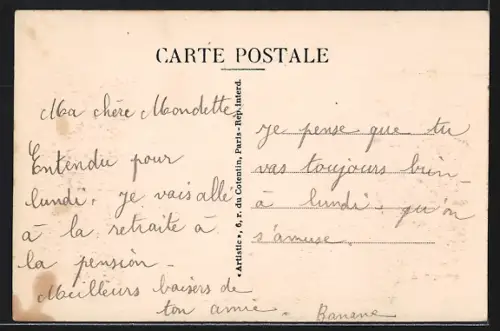 CARTE POSTALE
Ma chère Mondette,
Entendu pour
lundi. je vais allé
à la retraite à
la pension -
Meilleurs baisers de
ton amie.
Banane
«Artistic», 6, r. du Cotentin, Paris - Rep. Interd.
je pense que tu
vas toujours bien
à lundi. qu'on
s'amuse.